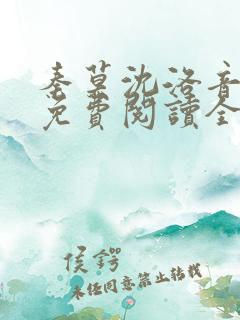 秦墓沈洛音
免費閱讀全
侯鍔
未经同意禁止转载